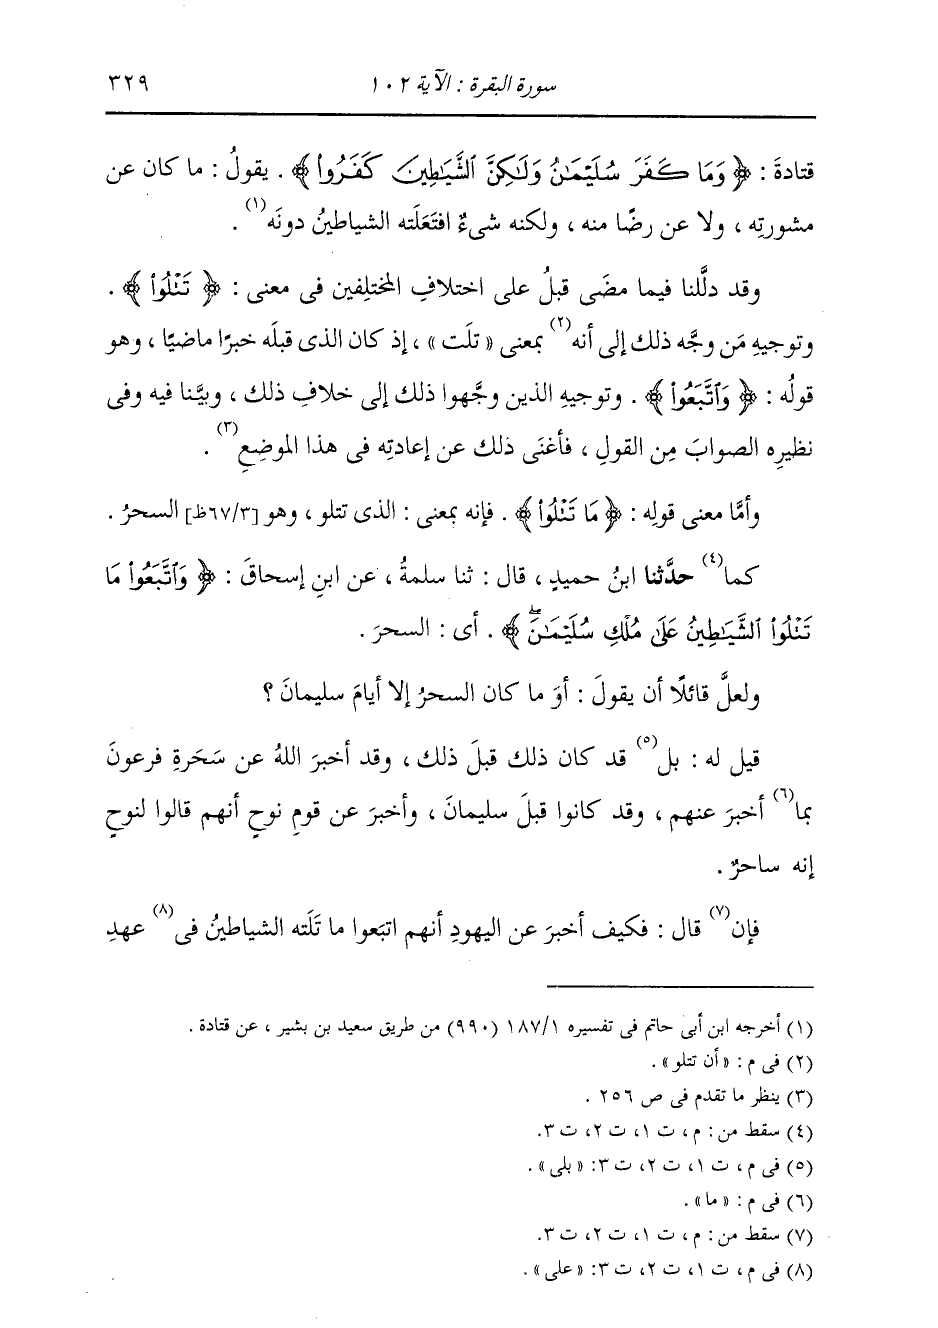 سورة البقرة : الآية ١٠٢ ٣٢٩
قتادةَ : ﴿ وَمَا كَفَرَ سُلَيْمَٰنُ وَلَٰكِنَّ ٱلشَّيَٰطِينَ كَفَرُوا۟ ﴾ . يقولُ : ما كان عن
مشورتِه ، ولا عن رضًا منه ، ولكنه شىءٌ افتَعَلَته الشياطينُ دونَه(١) .
وقد دلَّلنا فيما مضَى قبلُ على اختلافِ المختلِفين فى معنى : ﴿ تَتْلُوا۟ ﴾ .
وتوجيهِ مَن وجَّه ذلك إلى أنه(٢) بمعنى « تلَت » ، إذ كان الذى قبلَه خبرًا ماضيًا ، وهو
قولُه : ﴿ وَٱتَّبَعُوا۟ ﴾ . وتوجيهِ الذين وجَّهوا ذلك إلى خلافِ ذلك ، وبيَّنا فيه وفى
نظيرِه الصوابَ مِن القولِ ، فأغنَى ذلك عن إعادتِه فى هذا الموضِعِ(٣) .
وأمَّا معنى قولِه : ﴿ مَا تَتْلُوا۟ ﴾ . فإنه بمعنى : الذى تتلو ، وهو [٦٧/٣ظ] السحرُ .
كما(٤) حدَّثنا ابنُ حميدٍ ، قال : ثنا سلمةُ ، عن ابنِ إسحاقَ : ﴿ وَٱتَّبَعُوا۟ مَا
تَتْلُوا۟ ٱلشَّيَٰطِينُ عَلَىٰ مُلْكِ سُلَيْمَٰنَۖ ﴾ . أى : السحرَ .
ولعلَّ قائلًا أن يقولَ : أوَ ما كان السحرُ إلا أيامَ سليمانَ ؟
قيل له : بل(٥) قد كان ذلك قبلَ ذلك ، وقد أخبرَ اللهُ عن سَحَرةِ فرعونَ
بما(٦) أخبرَ عنهم ، وقد كانوا قبلَ سليمانَ ، وأخبرَ عن قومِ نوحٍ أنهم قالوا لنوحٍ
إنه ساحرٌ .
فإن(٧) قال : فكيف أخبرَ عن اليهودِ أنهم اتبَعوا ما تَلَته الشياطينُ فى(٨) عهدِ
(١) أخرجه ابن أبى حاتم فى تفسيره ١٨٧/١ (٩٩٠) من طريق سعيد بن بشير ، عن قتادة .
(٢) فى م : « أن تتلو » .
(٣) ينظر ما تقدم فى ص ٢٥٦ .
(٤) سقط من : م ، ت ١، ت ٢، ت ٣.
(٥) فى م ، ت ١، ت ٢، ت ٣: « بلى » .
(٦) فى م : « ما » .
(٧) سقط من : م ، ت ١، ت ٢، ت ٣.
(٨) فى م ، ت ١، ت ٢، ت ٣: « على » .